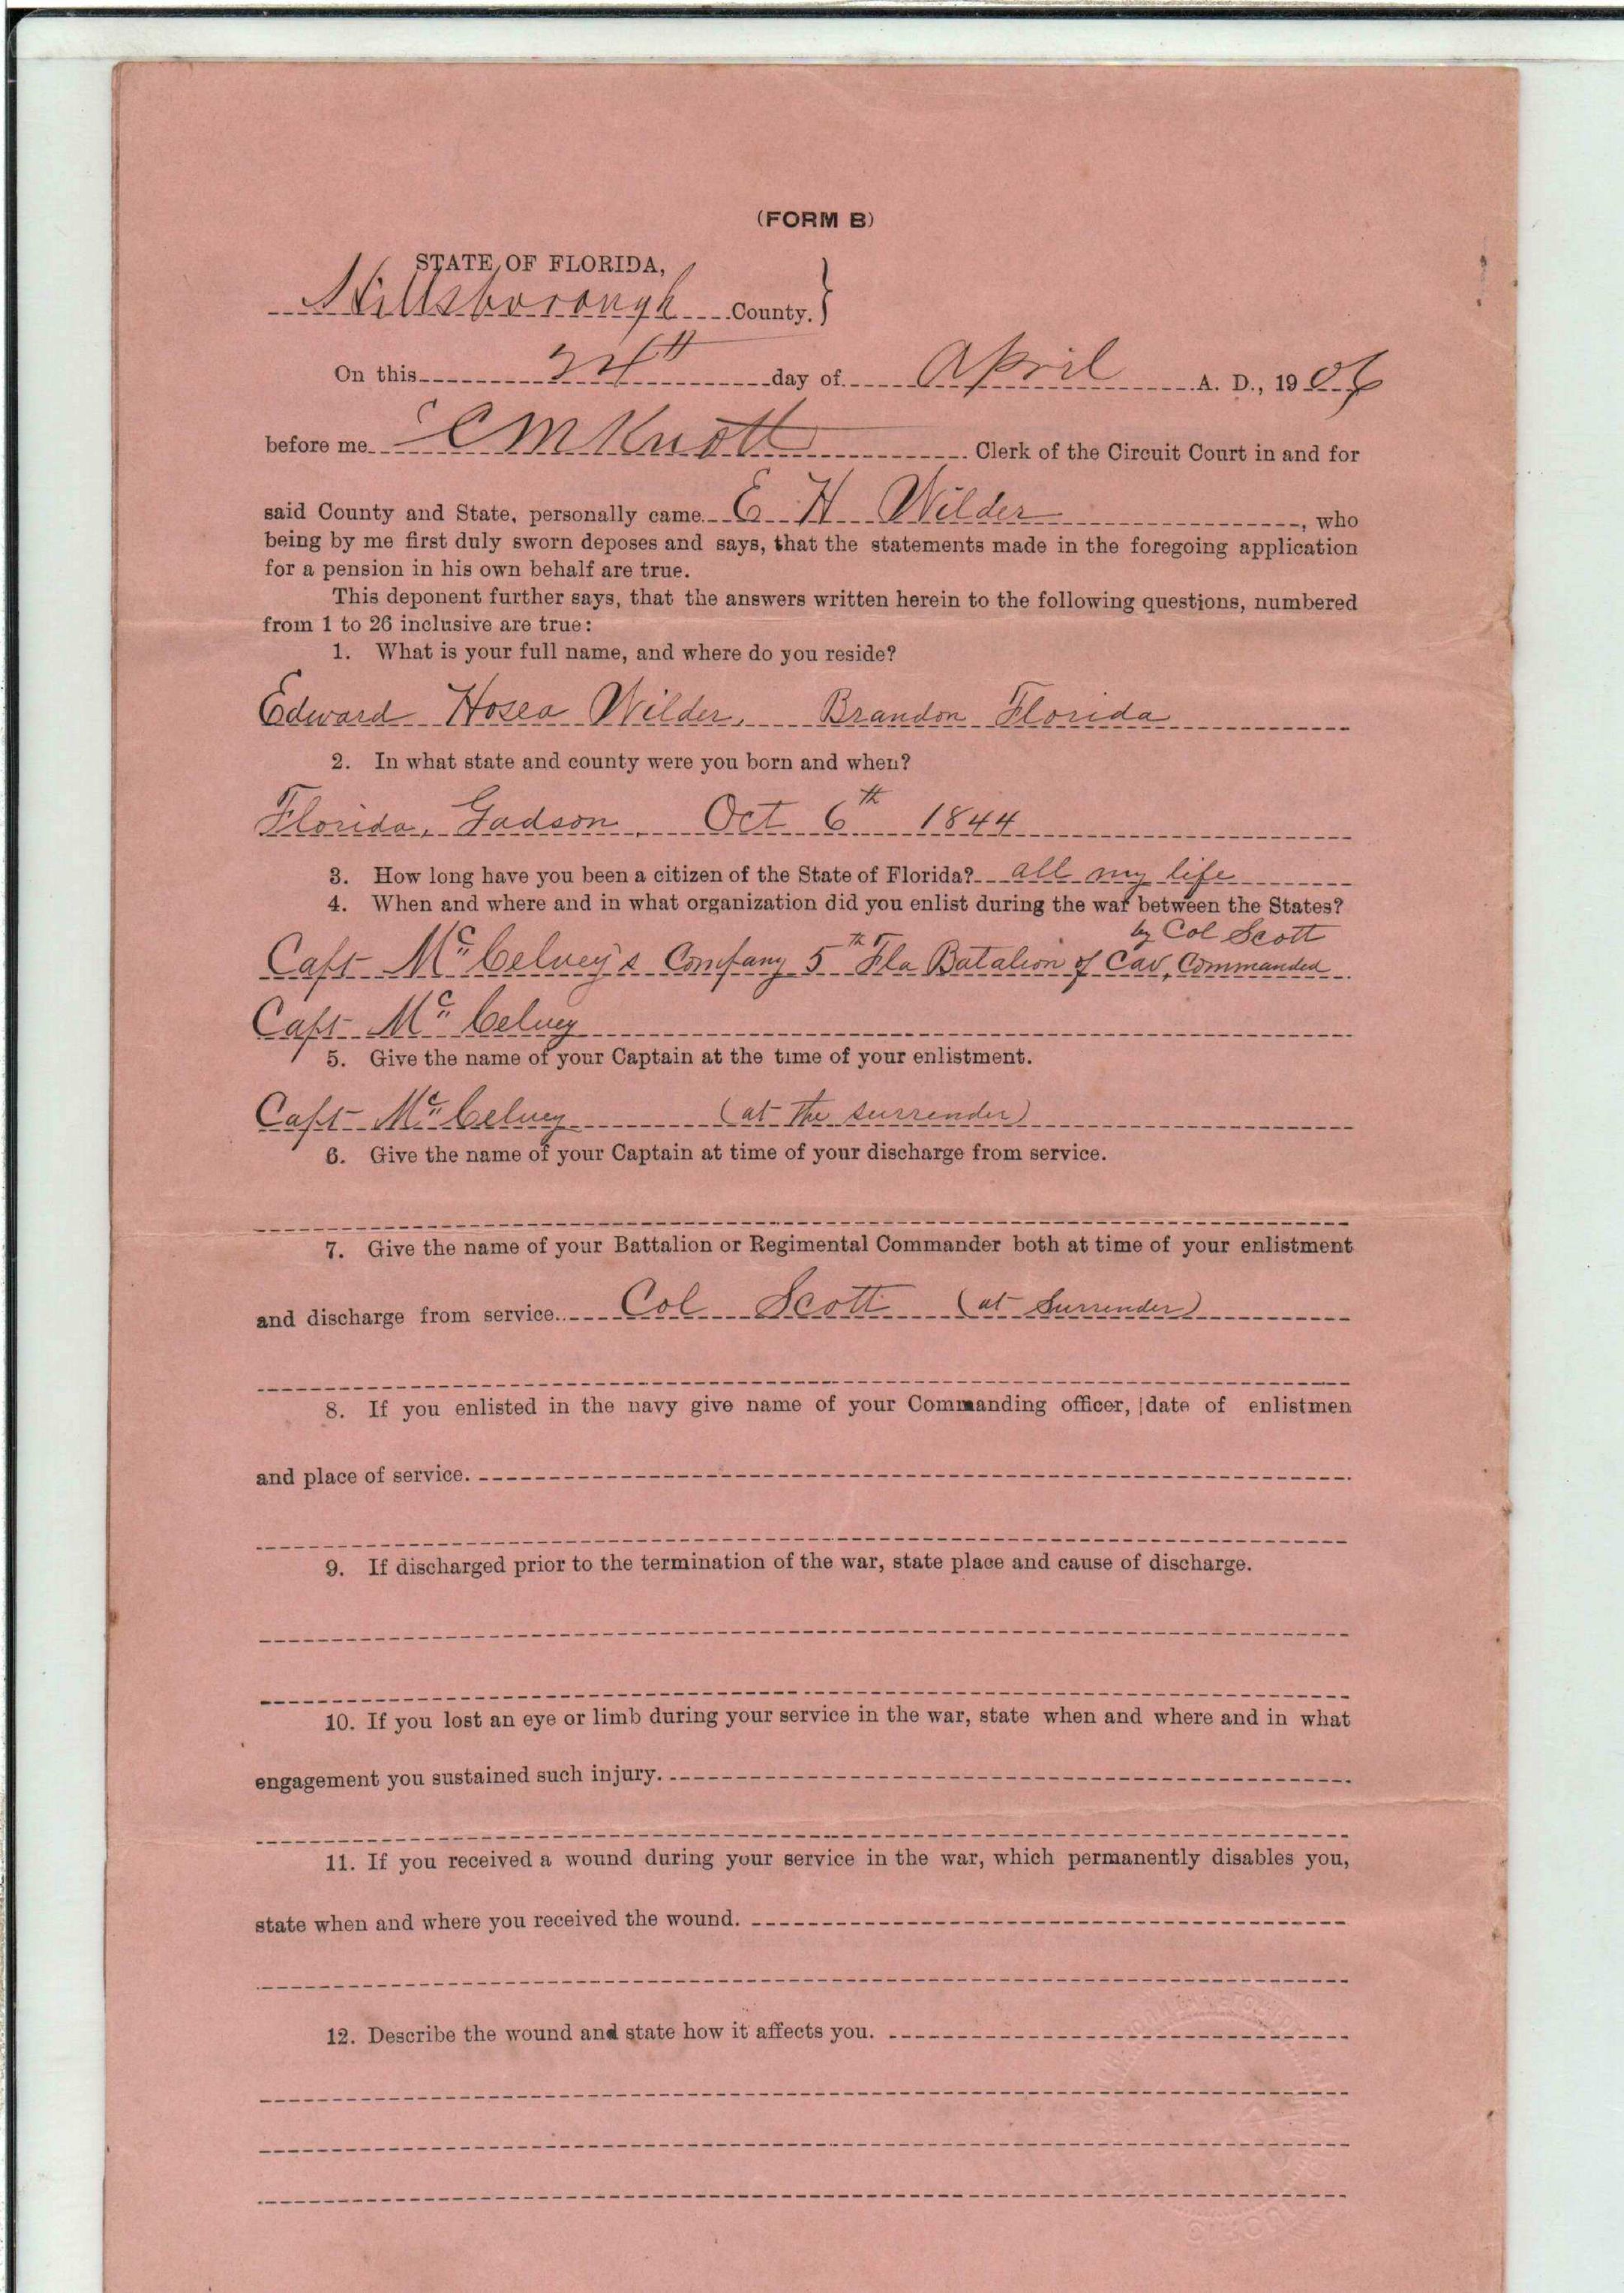 (FORM B)
STATE OF FLORIDA,
Hillsborough County.
On this 24th day of April A. D., 1906
before me C M Knott Clerk of the Circuit Court in and for
said County and State, personally came E H Wilder, who
being by me first duly sworn deposes and says, that the statements made in the foregoing application
for a pension in his own behalf are true.
This deponent further says, that the answers written herein to the following questions, numbered
from 1 to 26 inclusive are true:
1. What is your full name, and where do you reside?
Edward Hosea Wilder, Brandon Florida
2. In what state and county were you born and when?
Florida, Gadson, Oct 6th 1844
3. How long have you been a citizen of the State of Florida? all my life
4. When and where and in what organization did you enlist during the war between the States?
by Col Scott
Capt McCelvey's Company 5th Fla Batalion of Cav, Commanded
Capt McCelvey
5. Give the name of your Captain at the time of your enlistment.
Capt McCelvey (at the surrender)
6. Give the name of your Captain at time of your discharge from service.
7. Give the name of your Battalion or Regimental Commander both at time of your enlistment
and discharge from service. Col Scott (at Surrender)
8. If you enlisted in the navy give name of your Commanding officer, date of enlistmen
and place of service.
9. If discharged prior to the termination of the war, state place and cause of discharge.
10. If you lost an eye or limb during your service in the war, state when and where and in what
engagement you sustained such injury.
11. If you received a wound during your service in the war, which permanently disables you,
state when and where you received the wound.
12. Describe the wound and state how it affects you.